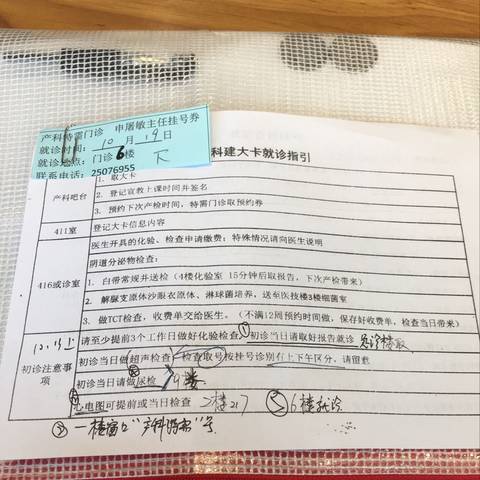 产科特需门诊 申屠敏主任挂号券
就诊时间: 10月19日
就诊地点: 门诊6楼 下
联系电话: 25076955
科建大卡就诊指引
产科吧台
1. 取大卡
2. 登记宣教上课时间并签名
3. 预约下次产检时间，特需门诊取预约券
411室
登记大卡信息内容
416或诊室
医生开具的化验、检查申请缴费；特殊情况请向医生说明
阴道分泌物检查：
1. 白带常规并送检（4楼化验室 15分钟后取报告，下次产检带来）
2. 解脲支原体沙眼衣原体、淋球菌培养，送至医技楼3楼细菌室
3. 做TCT检查，收费单交给医生。（不满12周预约时间做，保存好收费单，检查当日带来）
初诊注意事项
请至少提前3个工作日做好化验检查，①初诊当日请取好报告就诊
初诊当日做超声检查，检查取号按挂号诊别有上下午区分，请留意
初诊当日请做尿检 4楼
④心电图可提前或当日检查 二楼217 ⑤6楼就诊
③一楼窗口"产科特需"号